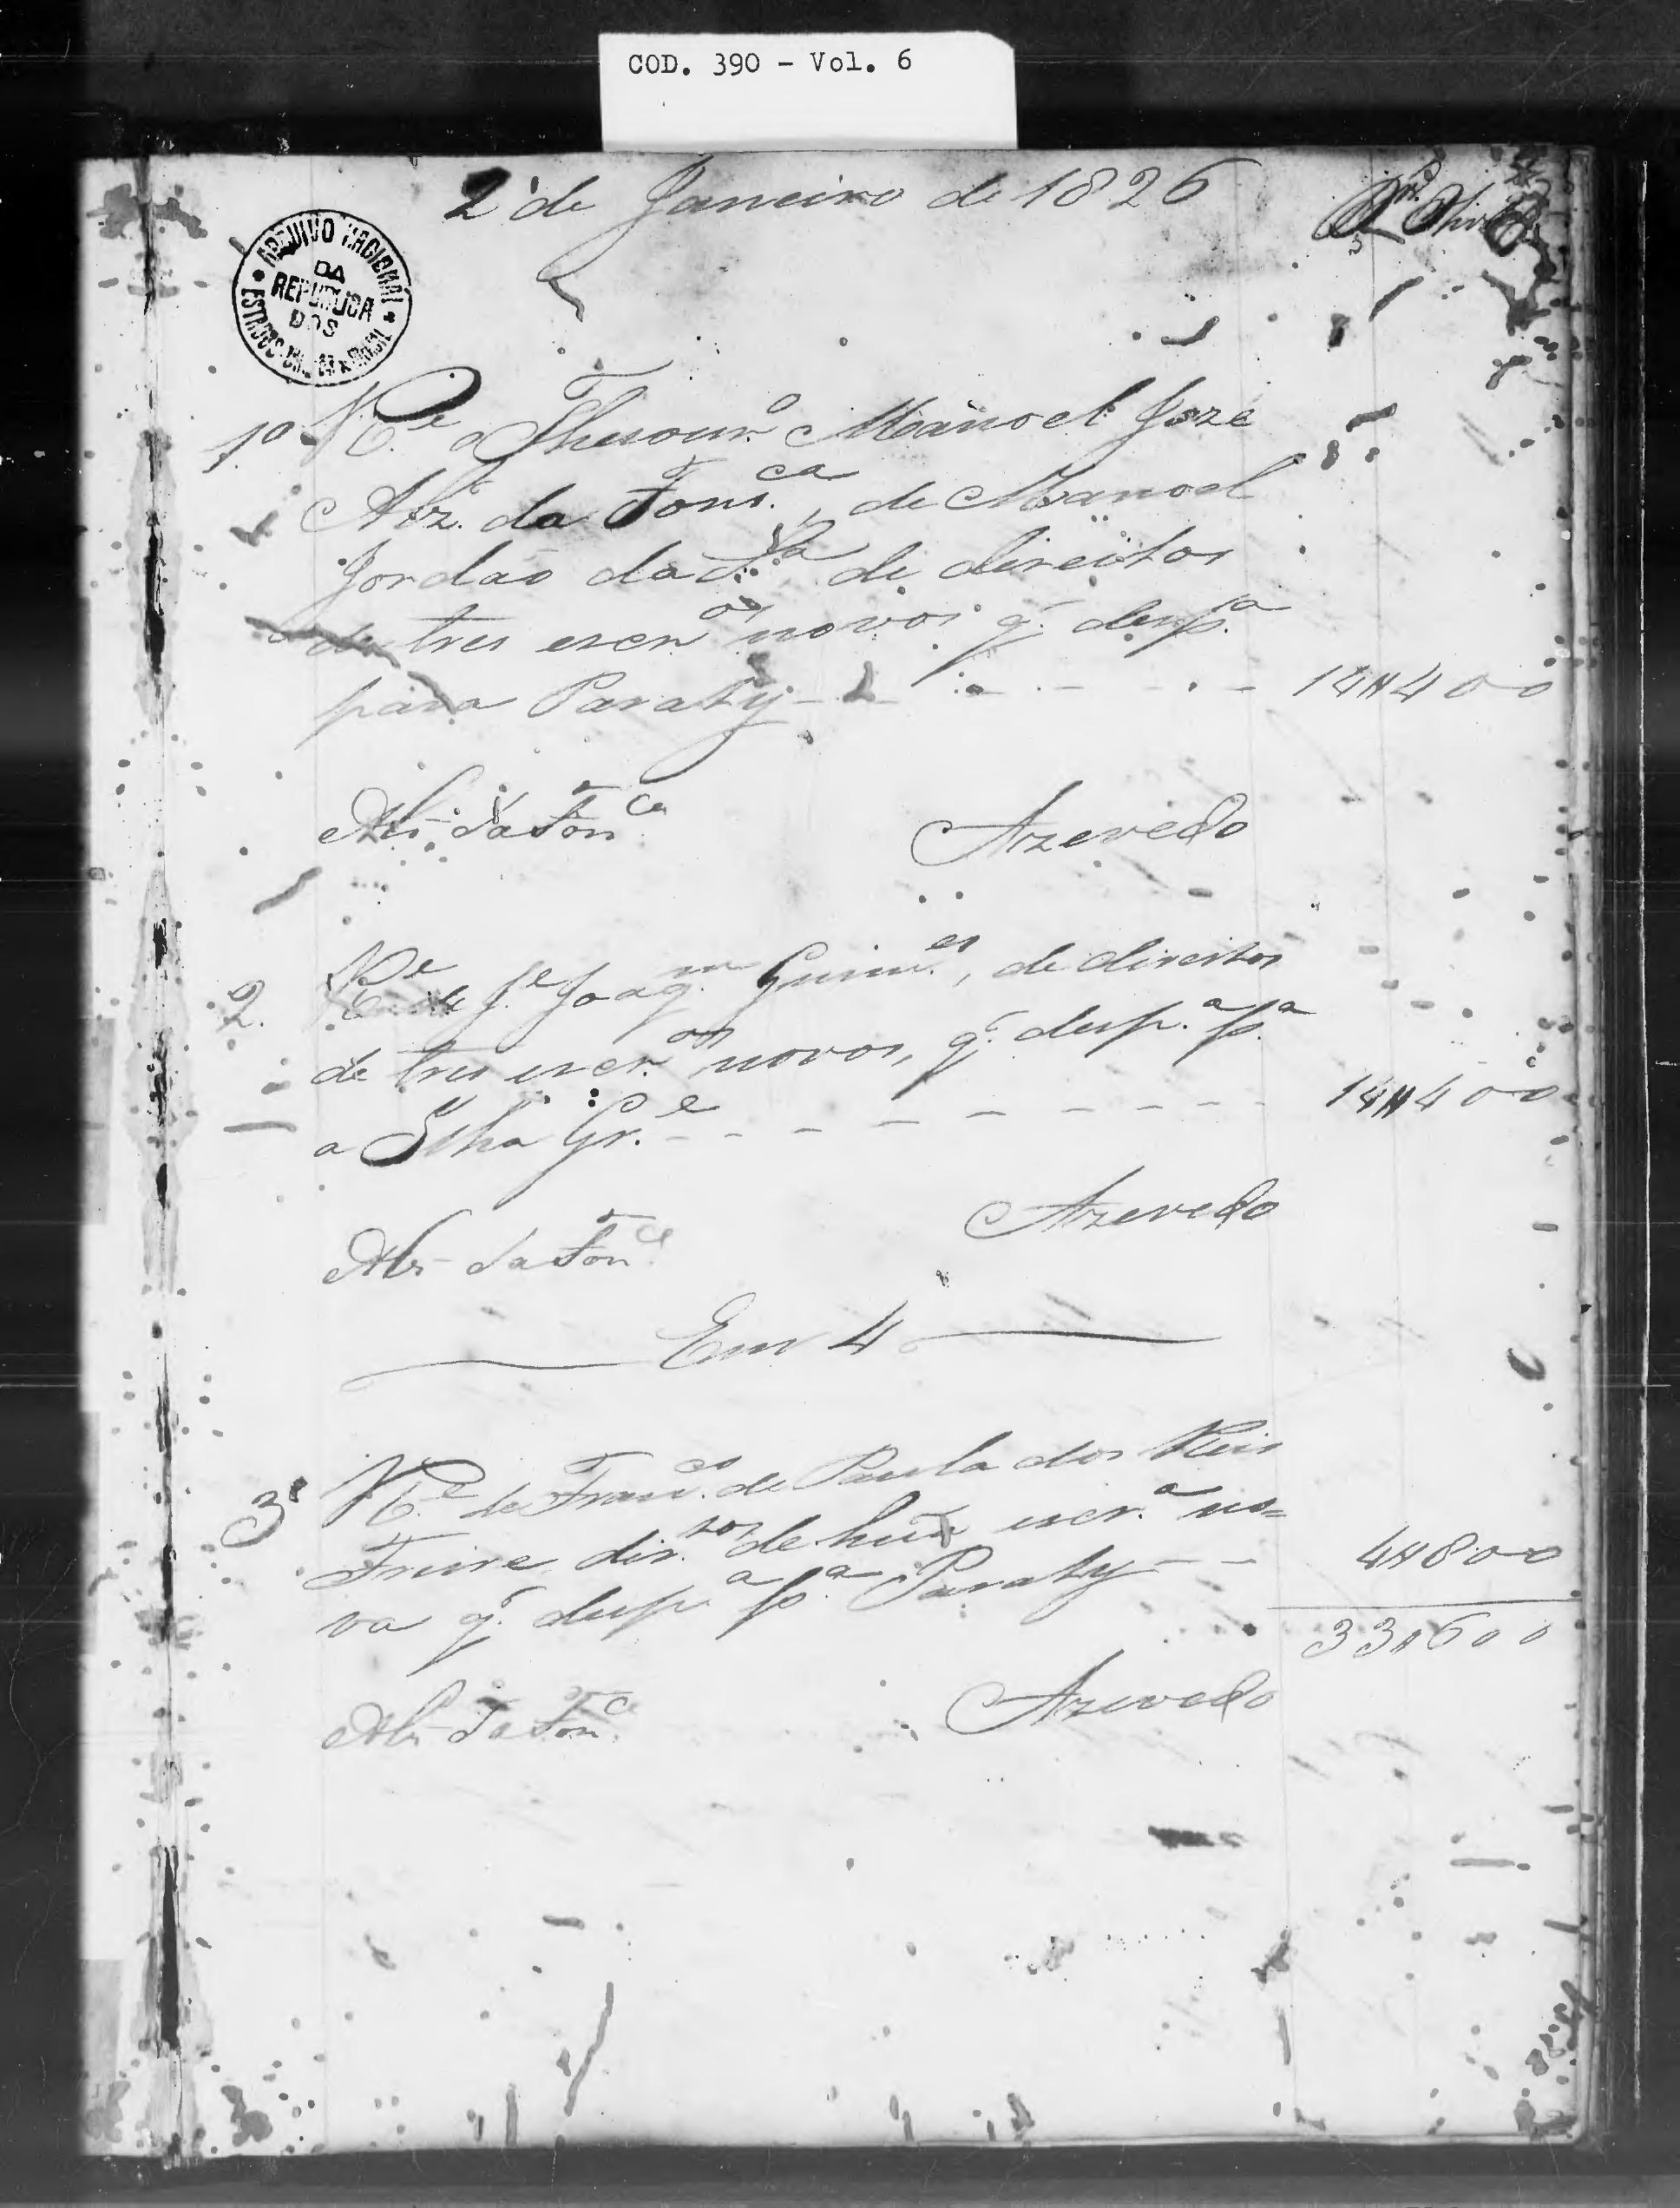 COD. 390 - Vol. 6
2 de Janeiro de 1826
ARQUIVO NACIONAL
DA
REPUBLICA
DOS
ESTADOS BRASIL
1º R.e o Thesour.o Manoel Jozé
Alz. da Fons.ca, de Manoel
Jordão da S.a de direitos
de tres escr.os novos q̃. desp.a
para Paraty - - - - 14#400
Alz da Fon.ca Azevedo
2. R.e de J.e Joaq.m Guim.es, de direitos
de tres escr.os novos, q̃. desp.a p.a
a Ilha Gr.e - - - - - - - 14#400
Alz da Fon.ca Azevedo
Em 4
3º R.e de Fran.co de Paula dos Reis
Freire dir.tos de huã escr.a no=
va q̃. desp.a p.a Paraty - - 4#800
33#600
Alz da Fon.ca Azevedo